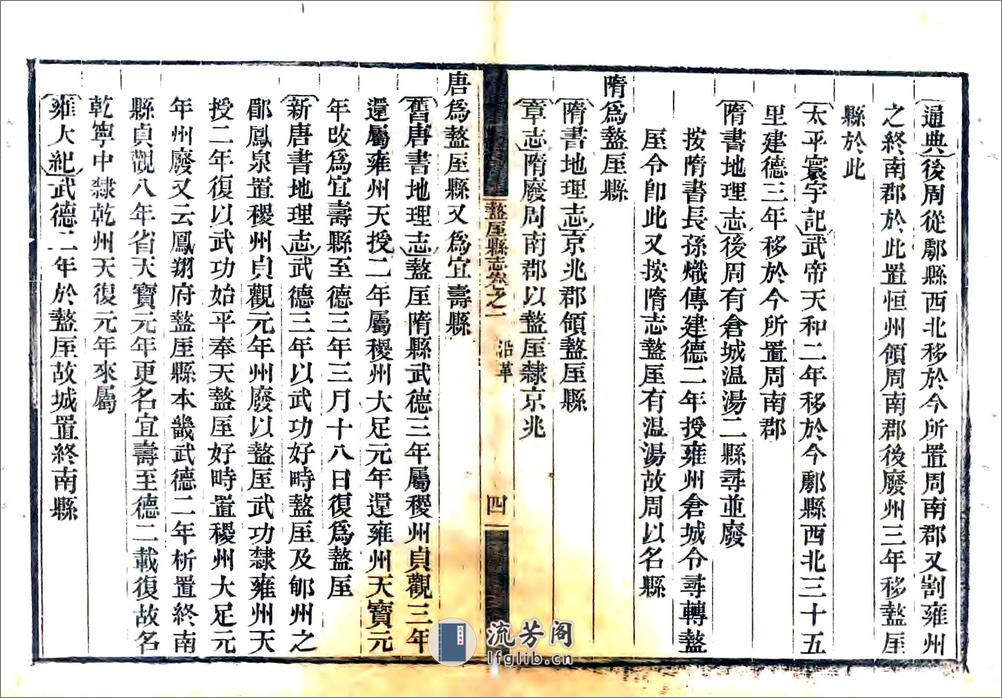 通典後周從鄠縣西北移於今所置周南郡又割雍州
之終南郡於此置恒州領周南郡後廢州三年移盩厔
縣於此
太平寰宇記武帝天和二年移於今鄠縣西北三十五
里建德三年移於今所置周南郡
隋書地理志後周有倉城温湯二縣尋並廢
按隋書長孫熾傳建德二年授雍州倉城令尋轉盩
厔令卽此又按隋志盩厔有温湯故周以名縣
隋爲盩厔縣
隋書地理志京兆郡領盩厔縣
章志隋廢周南郡以盩厔隸京兆
盩厔縣志卷之一 沿革 四
唐爲盩厔縣又爲宜壽縣
舊唐書地理志盩厔隋縣武德三年屬稷州貞觀三年
還屬雍州天授二年屬稷州大足元年還雍州天寶元
年改爲宜壽縣至德三年三月十八日復爲盩厔
新唐書地理志武德三年以武功好畤盩厔及郇州之
郿鳳泉置稷州貞觀元年州廢以盩厔武功隸雍州天
授二年復以武功始平奉天盩厔好畤置稷州大足元
年州廢又云鳳翔府盩厔縣本畿武德二年析置終南
縣貞觀八年省天寶元年更名宜壽至德二載復故名
乾寧中隸乾州天復元年來屬
雍大紀武德二年於盩厔故城置終南縣
流芳阁
lfglib.cn